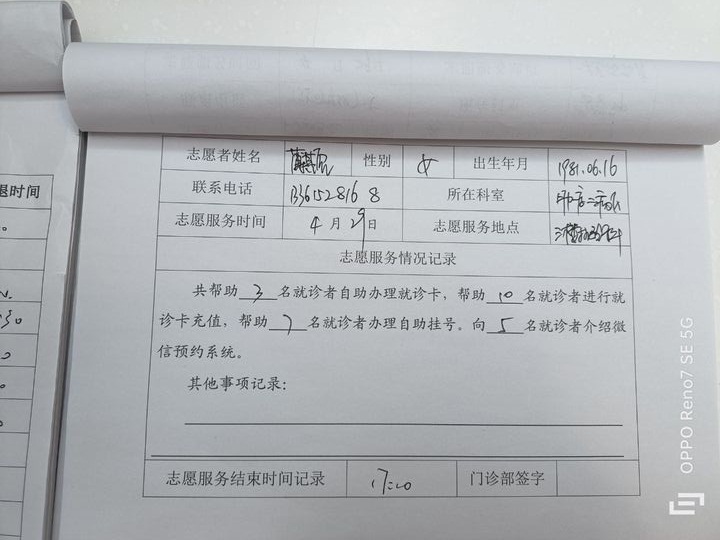 退时间
志愿者姓名 性别 女 出生年月 1981.06.16
联系电话 1336152816 8 所在科室
志愿服务时间 4月29日 志愿服务地点
志愿服务情况记录
共帮助 3 名就诊者自助办理就诊卡，帮助 10 名就诊者进行就
诊卡充值，帮助 7 名就诊者办理自助挂号。向 5 名就诊者介绍微
信预约系统。
其他事项记录：
志愿服务结束时间记录 17:00 门诊部签字
OPPO Reno7 SE 5G